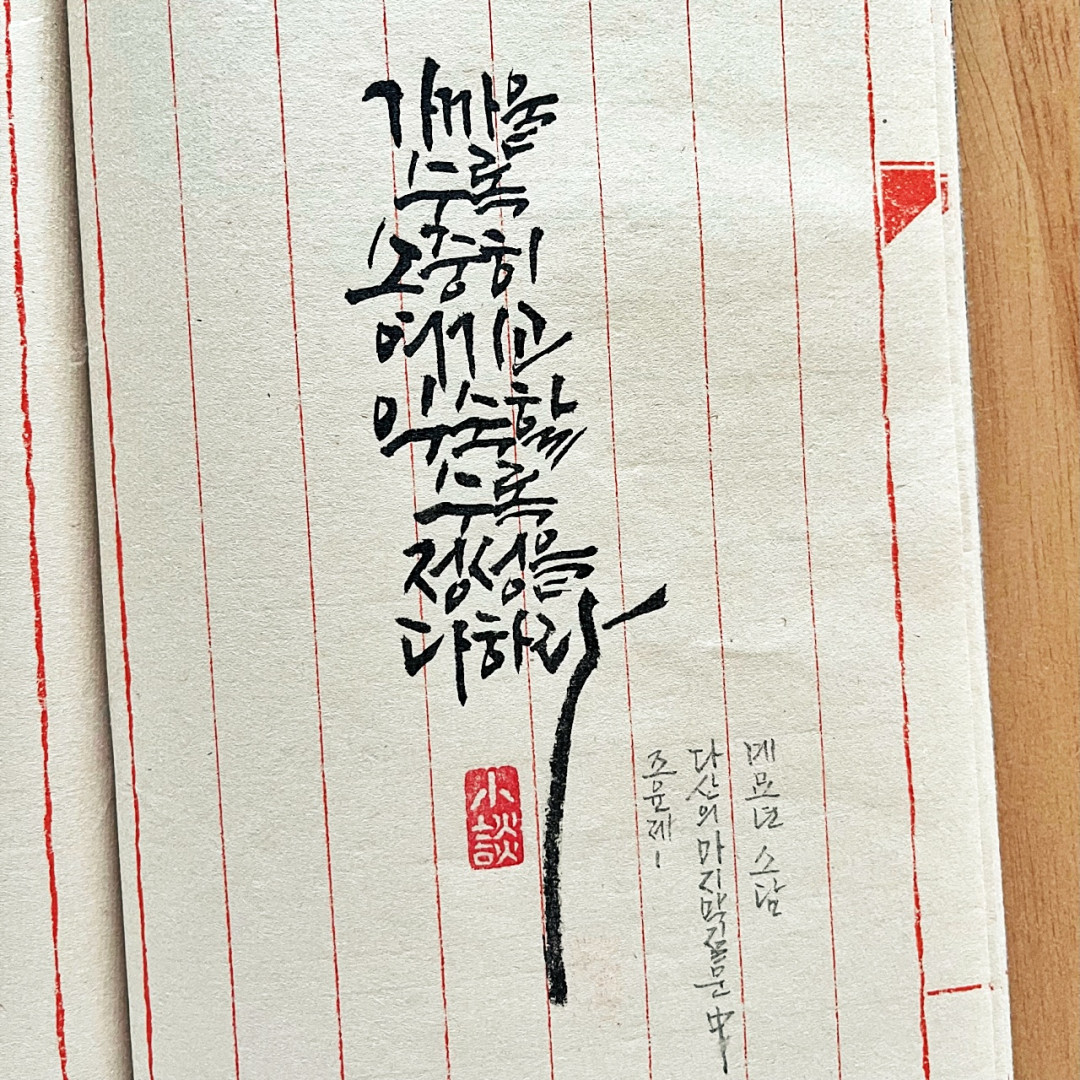 가까울
수록
소중히
여기고
익숙할
수록
정성을
다하라
조윤제-
다산의 마지막질문 中
계묘년 소담
小談